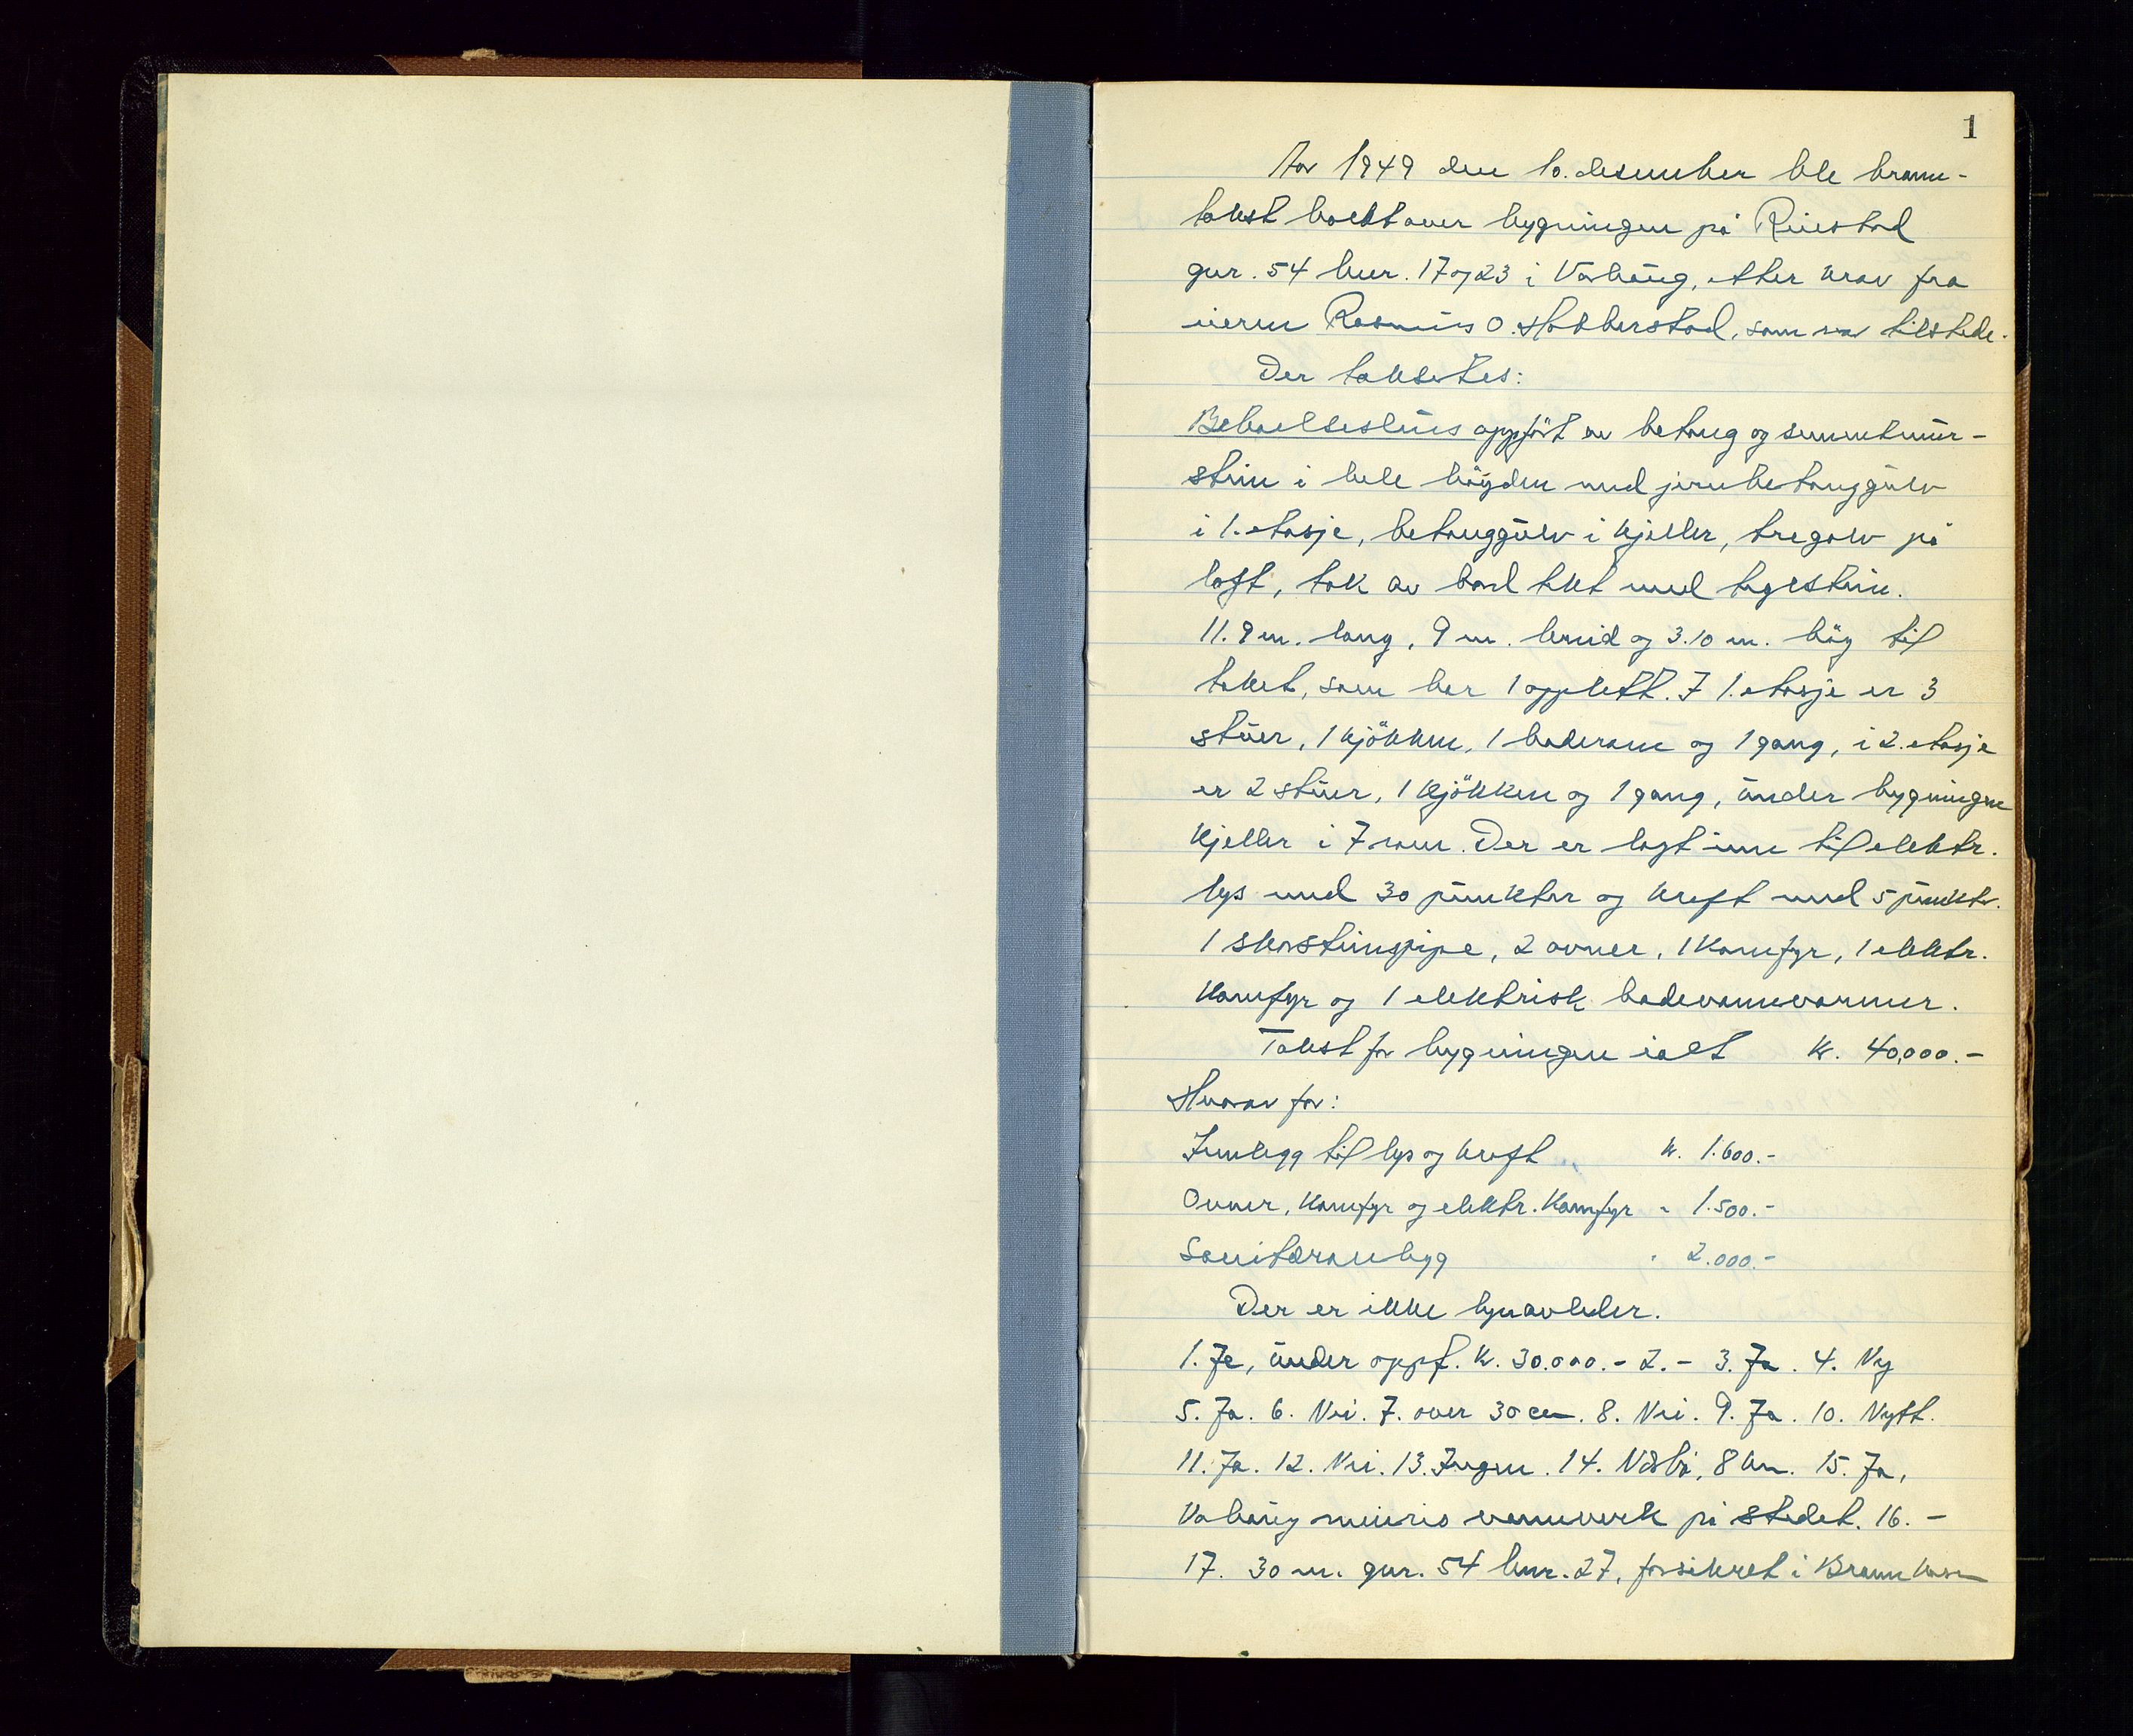 1
Aar 1949 den 10. desember ble brann-
takst holdt over bygningen på Ruestad
gnr. 54 bnr. 17 og 23 i Varhaug, etter krav fra
eieren Rasmus O. Hobberstad, som var tilstede.
Der taksertes:
Beboelseshus oppført av betong og sementmur-
stein i hele høyden med jernbetonggulv
i 1. etasje, betonggulv i kjeller, tregolv på
loft, tak av bord tekt med teglstein.
11.9 m. lang, 9 m. breid og 3.10 m. høg til
taket, som har 1 opplett. I 1. etasje er 3
stuer, 1 kjøkken, 1 baderom og 1 gang, i 2. etasje
er 2 stuer, 1 kjøkken og 1 gang, under bygningen
kjeller i 7 rom. Der er lagt inn til elektr.
lys med 30 punkter og kraft med 5 punkter.
1 skorsteinspipe, 2 ovner, 1 komfyr, 1 elektr.
komfyr og 1 elektrisk badevannsvarmer.
Takst for bygningen ialt kr. 40,000.-
Hvorav for:
Innlegg til lys og kraft kr. 1.600.-
Ovner, komfyr og elektr. komfyr " 1.500.-
Sanitæranlegg " 2.000.-
Der er ikke lynavleder.
1. Ja, under oppf. kr. 30.000.- 2. - 3. Ja. 4. Ny
5. Ja. 6. Nei. 7. over 30 cm. 8. Nei. 9. Ja. 10. Nytt.
11. Ja. 12. Nei. 13. Ingen. 14. Nærbø, 8 km. 15. Ja,
Varhaug vannverk på stedet. 16. -
17. 30 m. gnr. 54 bnr. 27, forsikret i Brannkassen